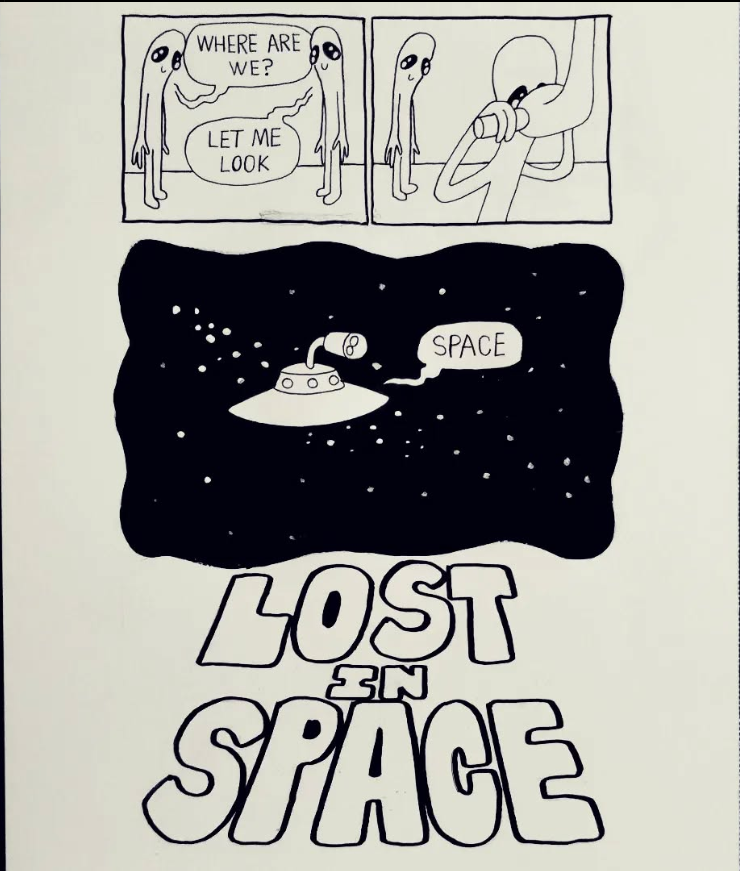 WHERE ARE
WE?
LET ME
LOOK
SPACE
LOST
IN
SPACE